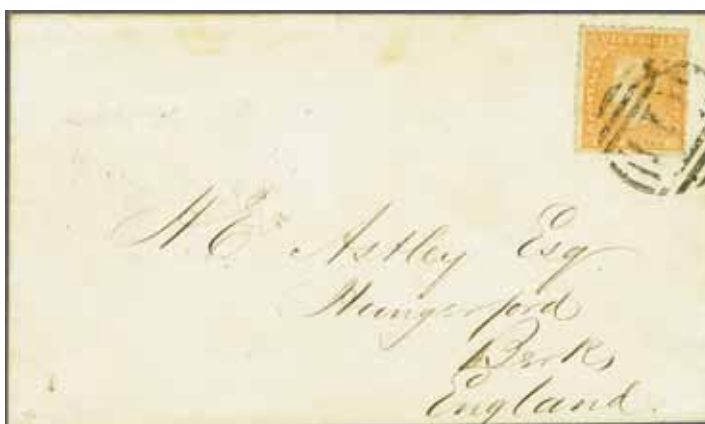 VICTORIA
H. E. Astley Esq.
Hungerford
Berks
England.